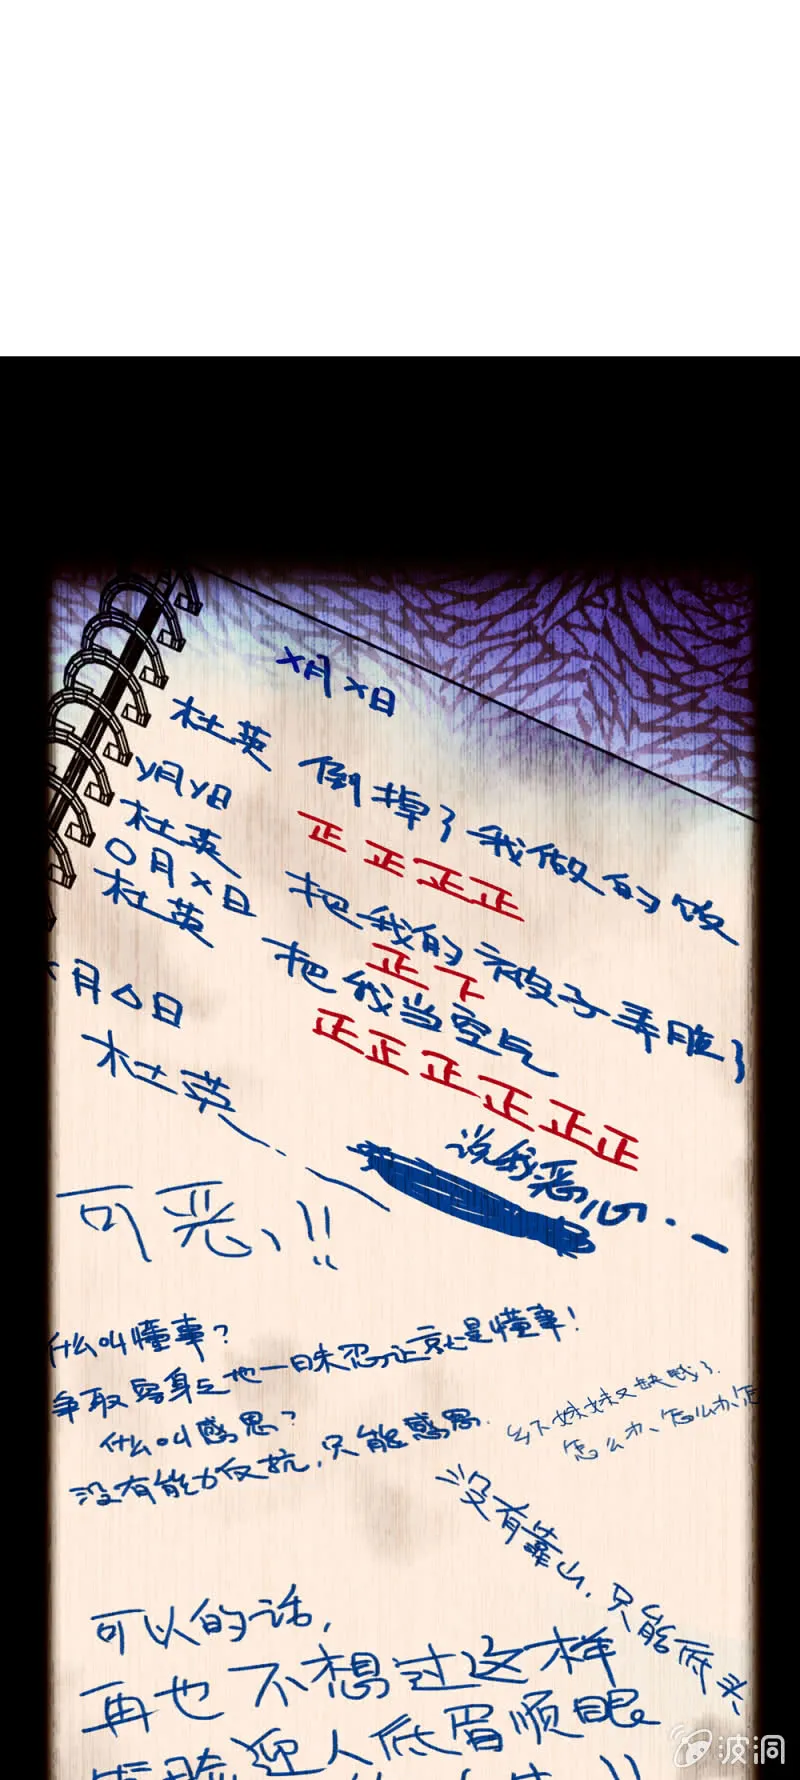 X月X日
杜英 倒掉了我做的饭
正正正正
Y月Y日
杜英 把我的被子弄脏了
正下
O月X日
杜英 把我当空气
正正正正正正
X月△日
杜英
说我恶心
可恶!!
什么叫懂事?
争取容身之地一日未忍让就是懂事!
什么叫感恩?
没有能力反抗,只能感恩.
乡下妹妹又缺钱了.
怎么办、怎么办、怎
没有靠山,只能低头
可以的话,
再也不想过这样
迎人低眉顺眼
波洞